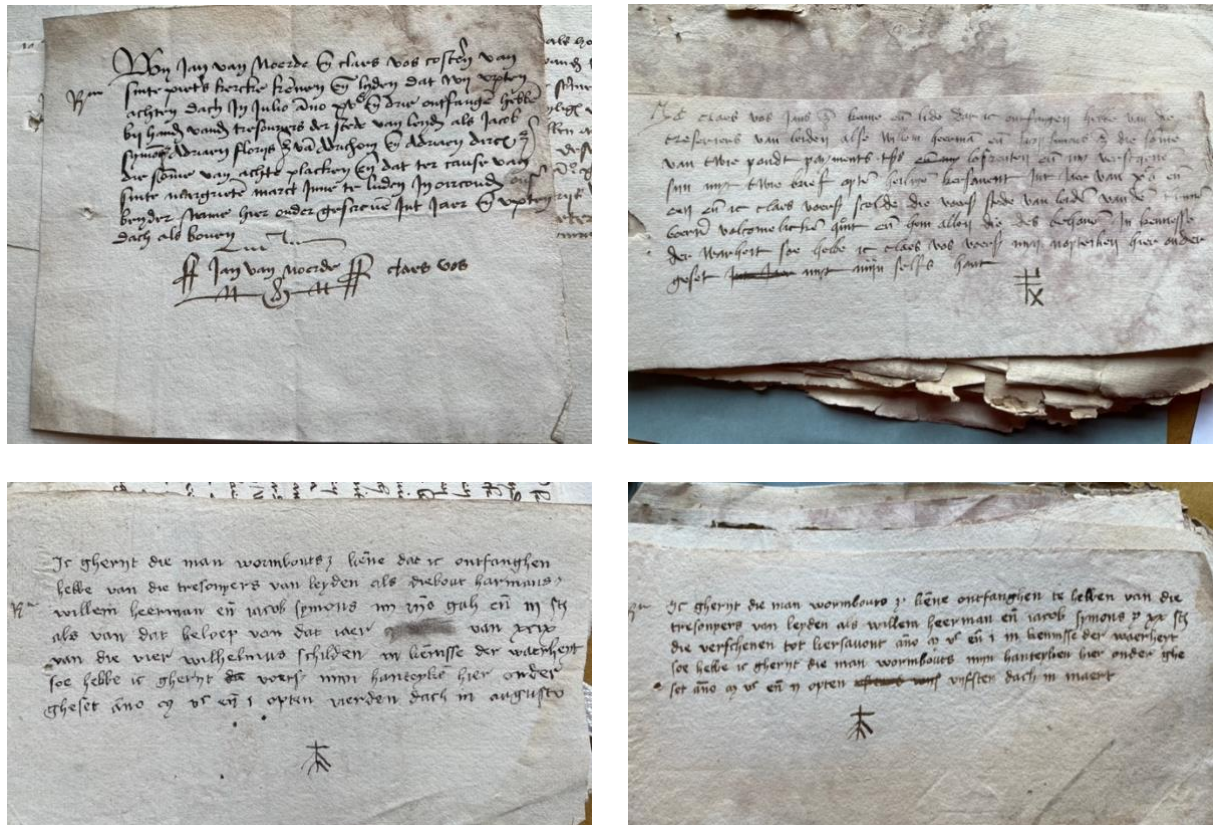 Wij Jan van Noerde En claes vos costers van
sinte piet's kercke kennen En lyden dat wij upten
achten dach In Julio Ano xvc En drie ontfangen hebbe
bij handen vande tresouriers der stede van leyden als Jacob
symonsz Adriaen florijs z van En Adriaen dircx z
die somme van achte placken En dat ter cause van
sinte margrieten marct Inne te luden In oirconden ons
beyder name hier onder gescreve Int Jaer En upten
dach als boven
Jan van Noerde claes vos
Ic claes vos Jans z kenne en lide dat ic ontfangen hebbe van die
tresoriers van leiden alse willem heerman en Jacop simons z die some
van twie pondt payments lofrenten en mij verscenen
sijn mijt twie brief opten heiligen kersavent Int Jaer van xvc en
een en ic claes voers scelde die voers stede van leiden van desen
volcomelicken quijt en hem allen die des behoeven In kennesse
der warheit soe hebbe ic claes vos voers mijn hier onder
geset mijt mijn selfs hant
Ic gherijt die man wormbouts z kenne dat ic ontfanghen
hebbe van die tresoryers van leyden als diebout harmans z
willem heerman en iacob symons iiij rijns gul en iij st
als van dat beloep van dat iaer van xcix
van die vier wilhelmus schilden in kennisse der waerheyt
soe hebbe ic gherijt voers mijn hanteyken hier onder
gheset ano m vc en i opten vierden dach in augusto
Ic gherijt die man wormbouts z kenne ontfanghen te hebben van die
tresoryers van leyden als willem heerman en iacob symons z xx st
die verschenen tot kersavont ano m vc en i in kennisse der waerheyt
soe hebbe ic gherijt die man wormbouts mijn hanteyken hier onder ghe
set ano m vc en ij opten vijften dach in maert